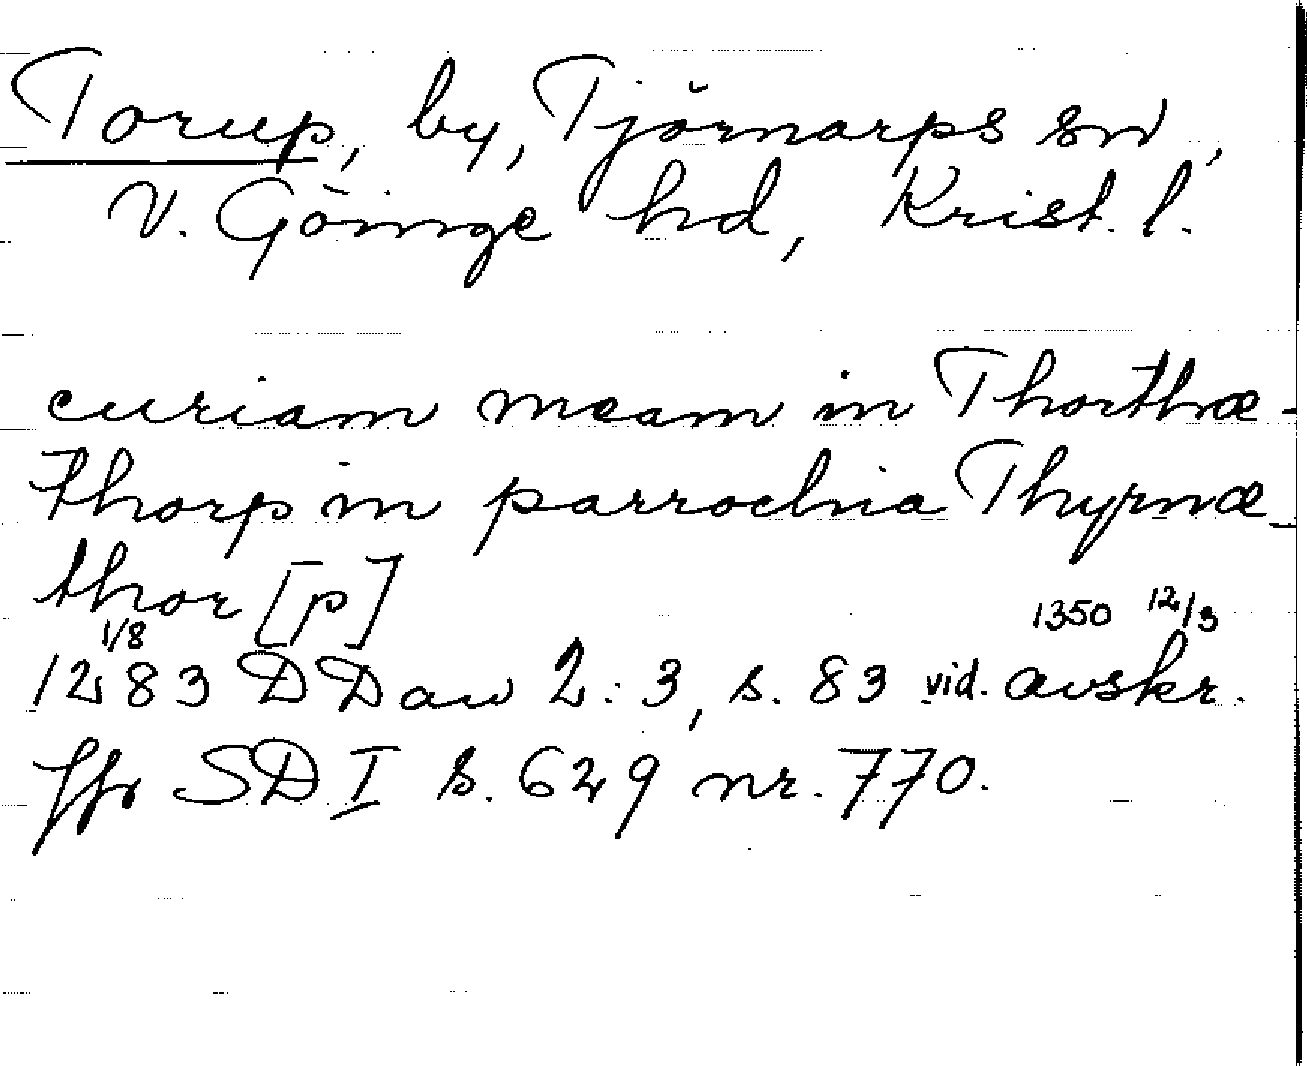 Torup, by, Tjörnarps sn,
V. Göinge hd, Krist. l.
curiam meam in Thorthæ-
thorp in parrochia Thyrnæ-
thor [p]
1/8 1350 12/3
1283 DDan 2:3, s. 83 vid. avskr.
Jfr SD I s. 629 nr. 770.